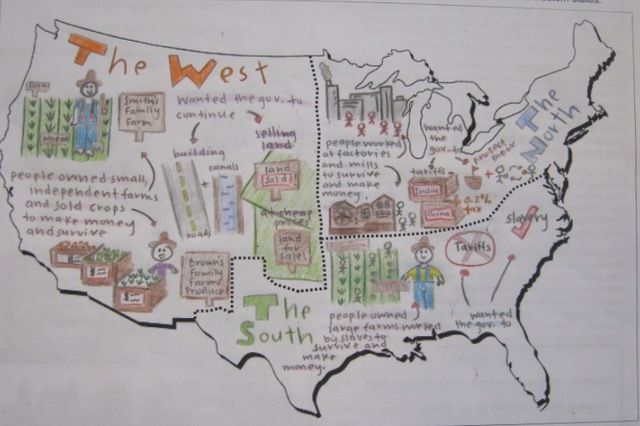 The West
farm
wheat
Smith's
Family
Farm
people owned small,
independent farms
and sold crops
to make money
and survive
Brown's
Family
Farms
Produce
wanted the gov. to
continue
building
roads
+
canals
selling
land
land
sold!
at cheap
prices
land
for
sale!
The
North
people worked
at factories
and mills
to survive
and make
money.
wanted
the
gov. to
protect their
tariffs
India
China
+ 0.2%
tax
The
South
people owned
large farms worked
by slaves to
survive and
make
money.
wanted
the gov. to
Tariffs
slavery